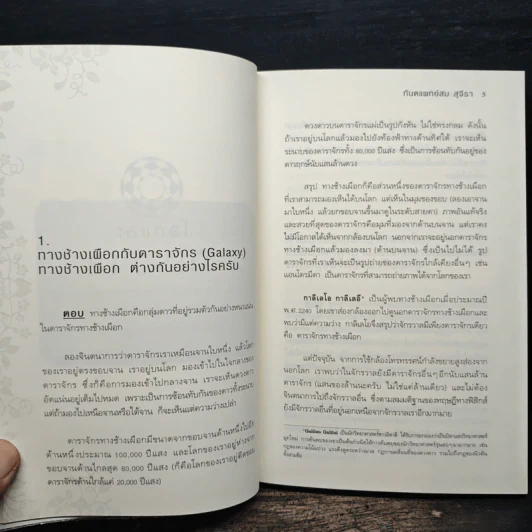 1.
ทางช้างเผือกกับดาราจักร (Galaxy)
ทางช้างเผือก ต่างกันอย่างไรครับ
ตอบ ทางช้างเผือกคือกลุ่มดาวที่อยู่รวมตัวกันอย่างหนาแน่น
ในดาราจักรทางช้างเผือก
ลองจินตนาการว่าดาราจักรเราเหมือนจานใบหนึ่ง แล้วโลก
ของเราอยู่ตรงขอบจาน เราอยู่บนโลก มองเข้าไปในใจกลางของ
ดาราจักร ซึ่งก็คือการมองเข้าไปกลางจาน เราจะเห็นดวงดาว
อัดแน่นอยู่เต็มไปหมด เพราะเป็นการซ้อนทับกันของดาวทั้งระนาบ
แต่ถ้ามองไปเหนือจานหรือใต้จาน ก็จะเห็นแต่ความว่างเปล่า
ดาราจักรทางช้างเผือกมีขนาดจากขอบจานด้านหนึ่งไปอีก
ด้านหนึ่งประมาณ 100,000 ปีแสง และโลกของเราอยู่ห่างจาก
ขอบจานด้านไกลสุด 80,000 ปีแสง (ก็คือโลกของเราอยู่ติดขอบ
ดาราจักรด้านใกล้แค่ 20,000 ปีแสง)
ทันตแพทย์สม สุจีรา 5
ดวงดาวบนดาราจักรแม่เป็นรูปกังหัน ไม่ใช่ทรงกลม ดังนั้น
ถ้าเราอยู่บนโลกแล้วมองไปยังท้องฟ้าทางด้านทิศใต้ เราจะเห็น
ระนาบของดาราจักรทั้ง 80,000 ปีแสง ซึ่งเป็นการซ้อนทับกันอยู่ของ
ดาวฤกษ์นับแสนล้านดวง
สรุป ทางช้างเผือกก็คือส่วนหนึ่งของดาราจักรทางช้างเผือก
ที่เราสามารถมองเห็นได้บนโลก แต่เห็นในมุมของขอบ (ลองเอาจาน
มาใบหนึ่ง แล้วยกขอบจานขึ้นมาดูในระดับสายตา) ภาพอันแท้จริง
และสวยที่สุดของดาราจักรคือมุมที่มองจากด้านบนจาน แต่เราคง
ไม่มีโอกาสได้เห็นจากกล้องบนโลก นอกจากเราจะอยู่นอกดาราจักร
ทางช้างเผือกแล้วมองลงมา (ด้านบนจาน) ซึ่งเป็นไปไม่ได้ รูป
ดาราจักรที่เราเห็นจะเป็นรูปของดาราจักรใกล้เคียงอื่นๆ เช่น
แอนโดรมีดา เป็นดาราจักรที่สามารถถ่ายภาพได้จากโลกของเรา
กาลิเลโอ กาลิเลอี* เป็นผู้พบทางช้างเผือกเมื่อประมาณปี
พ.ศ. 2240 โดยเขาส่องกล้องออกไปดูนอกดาราจักรทางช้างเผือกและ
พบว่ามีแต่ความว่าง กาลิเลโอจึงสรุปว่าจักรวาลมีเพียงดาราจักรเดียว
คือ ดาราจักรทางช้างเผือก
แต่ปัจจุบัน จากการใช้กล้องโทรทรรศน์กำลังขยายสูงส่องจาก
นอกโลก เราพบว่าในจักรวาลยังมีดาราจักรอื่นๆ อีกนับแสนล้าน
ดาราจักร (แสนของล้านนะครับ ไม่ใช่แค่ล้านเดียว) และไม่ต้อง
จินตนาการไปถึงจักรวาลอื่น ซึ่งตามสมมติฐานของทฤษฎีทางฟิสิกส์
ยังมีจักรวาลอื่นที่อยู่นอกเหนือจากจักรวาลเราอีกมากมาย
*Galileo Galilei